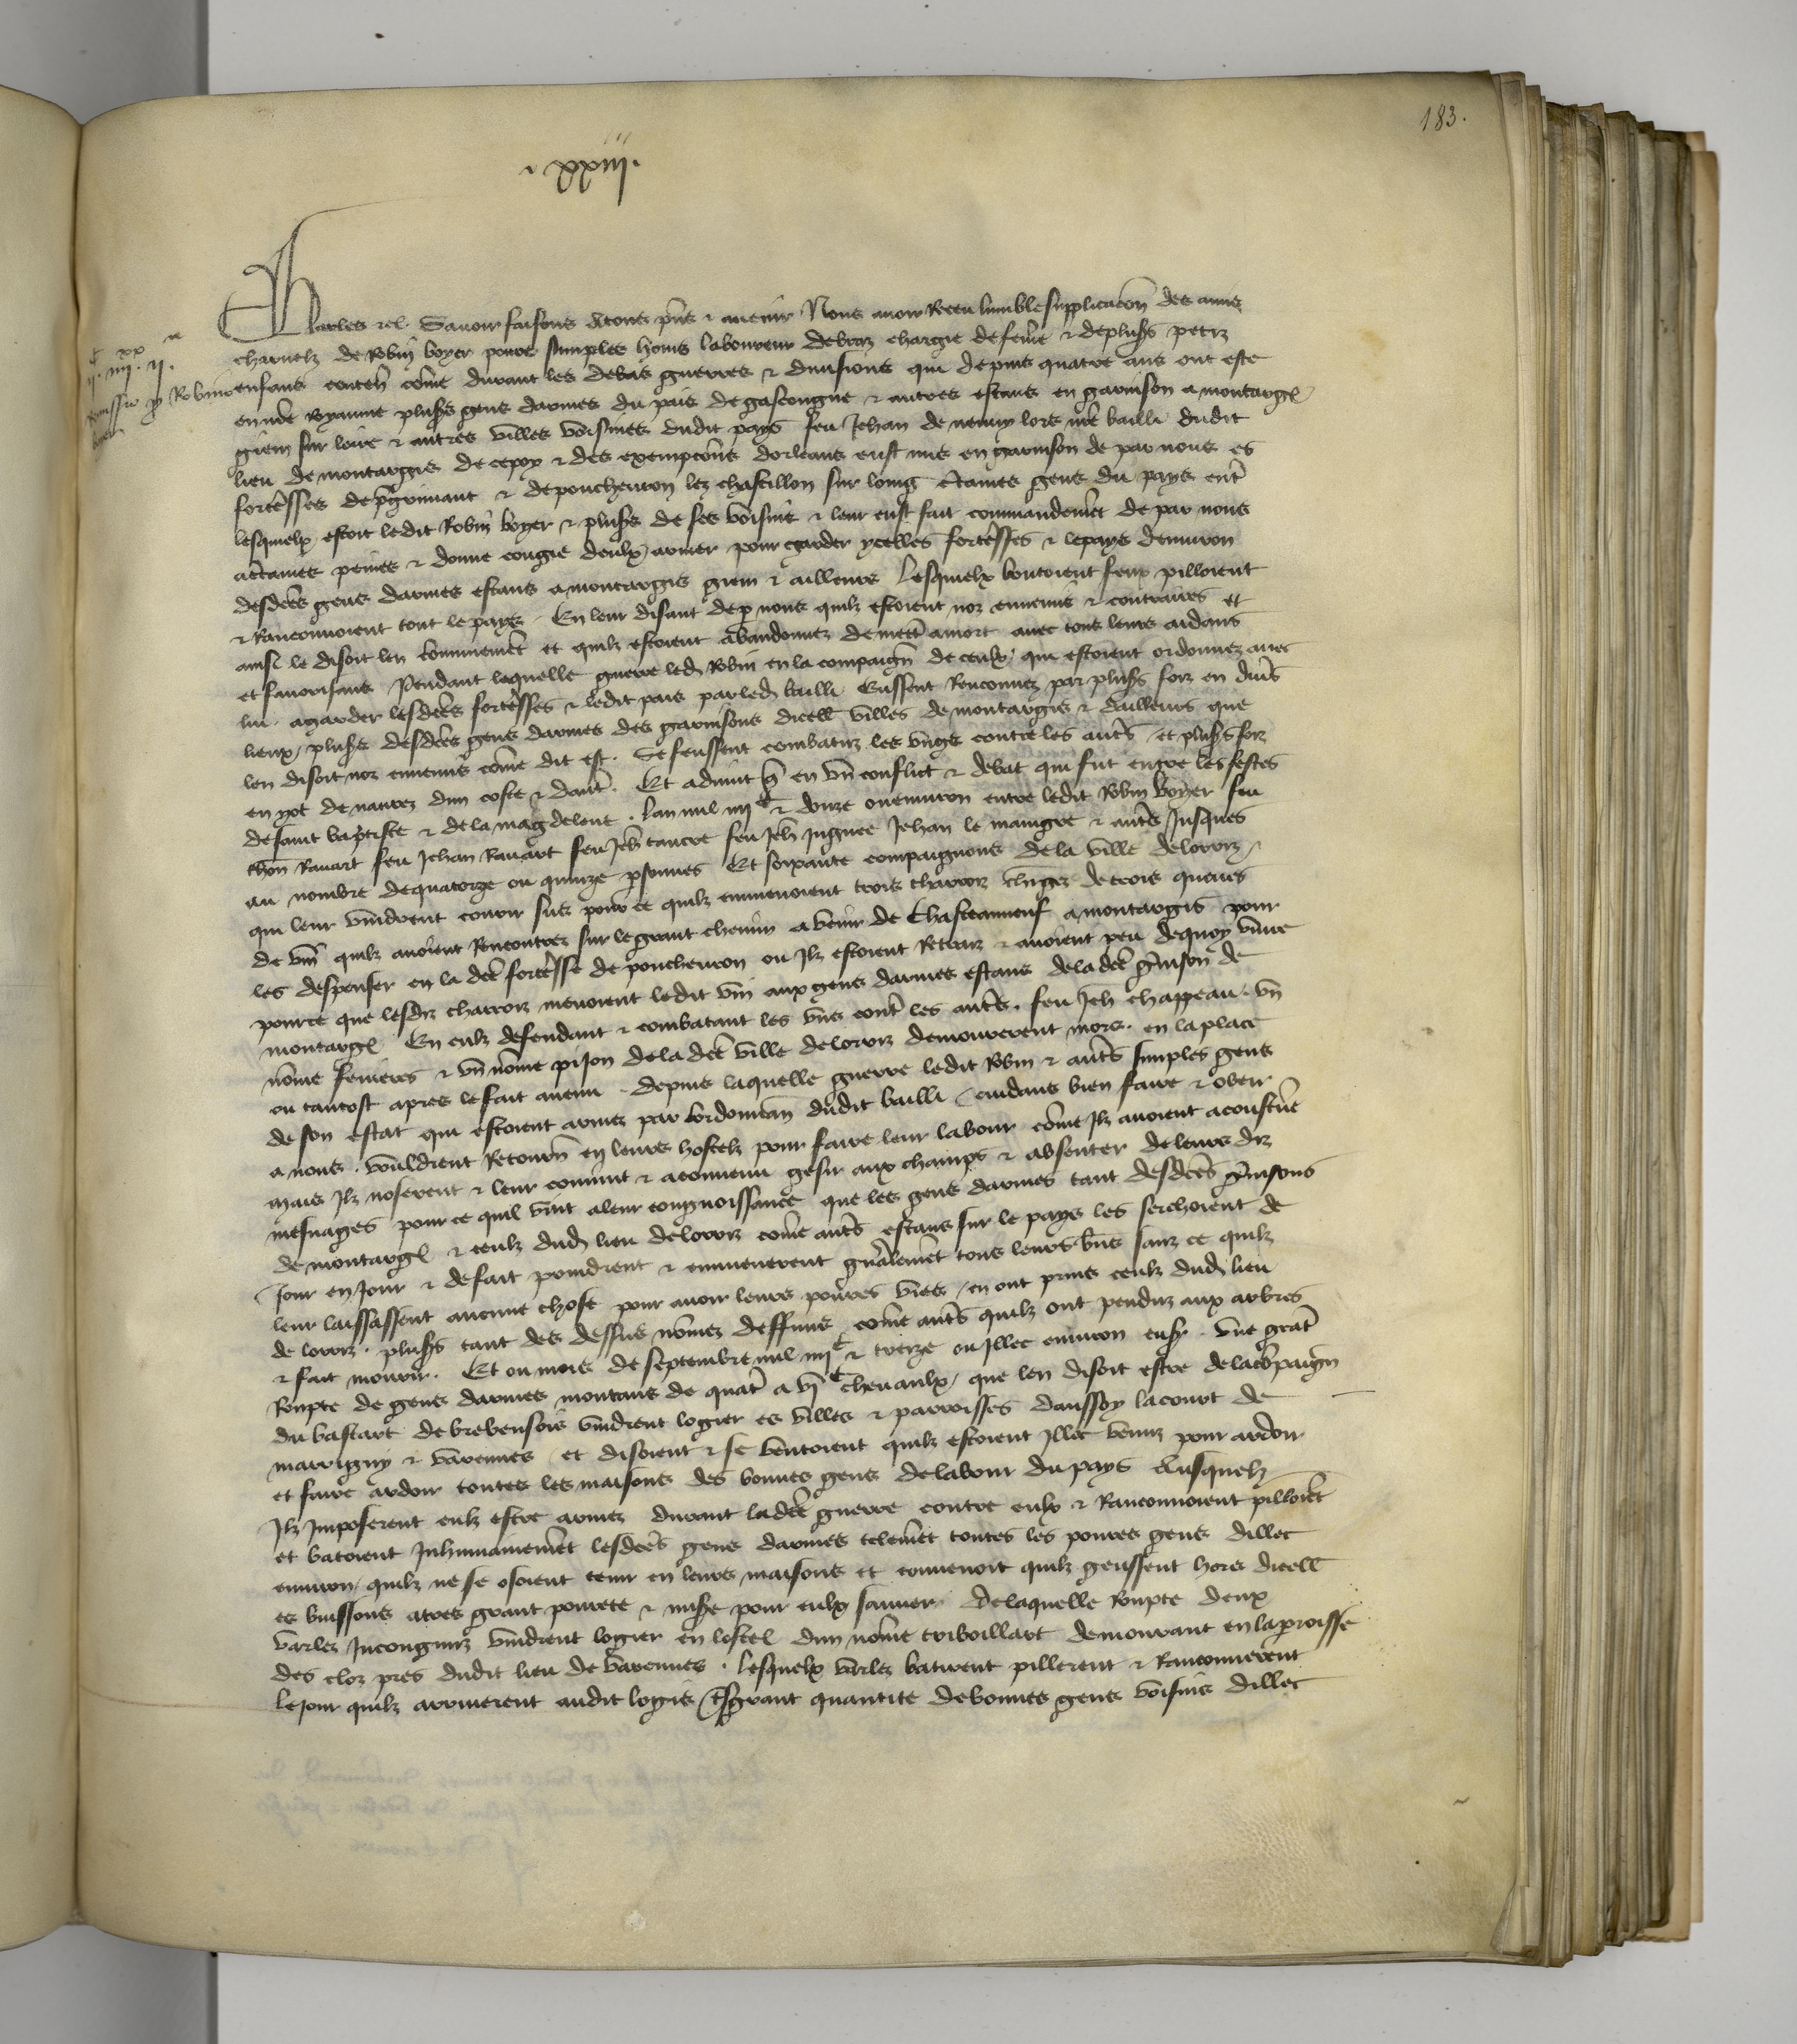 183.
xxiii.
Charles etc. Savoir faisons a tous pñs et avenir Nous avoir Receu lumble supplicacōn des amis
charnelz de Robin boyer povre simples homs laboureur de braz chargie de fēme et de plus̄s petiz
enfans contēn cōme durant les debas guerres et divisions qui depuis quatre ans ont este
en nr̄e Royaume plus̄s gens darmes du pais de gascongne et autres estans en garnison a montargȩ
giem sur loire et autres villes voisines dudit pays feu Jehan de lors nr̄e bailli dudit
lieu de montargis de cepoy et des exempcōns dorleans eust mis en garnison de par nous es
fortēsses de et de poucheuron lez chastillon sur loing c̄taines gens du pays ent̄
lesquelx estoit ledit Robin boyer et plus̄s de ses voisins et leur eust fait commandemēt de par nous
a c̄taines peines et donne congie deulx armer pour garder ycelles fortēsses et le pays denviron
desdc̄es gens darmes estans a montargis giem et ailleurs Lesquelx boutoient feux pilloient
et Ranconnoient tout le pays En leur disant de p nous quilz estoient noz ennemis et contraires et
ainsi le disoit len communemēt et quilz estoient abandonnez de mett̄ a mort avec tous leurs aidans
et favorisans Pendant laquelle guerre led Robin en la compaign̄ de ceulx qui estoient ordonnez avec
lui a garder lesdc̄es fortēsses et ledit pais par led bailli Eussent Rencontrez par plus̄s foiz en div̄s
lieux plus̄s desdc̄es gens darmes des garnisons dicell villes de montargis et dailleurs que
len disoit noz ennemis cōme dit est. Se feussent combatuz les ungs contre les aut̄s et plus̄s foiz
en yot de navrez dun coste et daut̄. Et advint q̄ en un conflict et debat qui fut entre les festes
de saint baptiste et de la magdelene lan mil iiijc et onze ou environ entre ledit Robin boyer feu
Ravart feu Jehan Ravart feu Jeh̄ tancre feu Jeh̄ Jehan le maingre et aut̄s Jusques
au nombre de quatorze ou quinze p̱sonnes Et soixante compaignons de la ville de lorriz
qui leur vindrent courir sus pour ce quilz emmenoient trois charroiz chargez de trois queues
de vin quilz avoient Rencontrez sur le grant chemin a venir de Chasteauneuf a montargis pour
les despenser en la dc̄e fortēsse de poucheuron ou Jlz estoient Retraiz et avoient peu de quoy vivre
pource que lesdiz charroiz menoient ledit vin aux gens darmes estans de la dc̄e gñison de
montargȩ En eulz defendant et combatant les uns cont̄ les aut̄s. feu Jeh̄ chappeau. un
nōme ferrieres et un nōme pijon de la dc̄e ville de lorriz demourerent mors. en la place
ou tantost apres le fait avenu. depuis laquelle guerre ledit Robin et aut̄s simples gens
de son estat qui estoient armez par lordonnan̄ dudit bailli cuidans bien faire et obeir
a nous. vouldrent Retourn̄ en leurs hostelz pour faire leur labour cōme Jlz avoient acoustūe
mais Jlz noserent et leur convint et a convenu gesir aux champs et absenter de leurs diz
mesnages pour ce quil vint a leur congnoissance que les gens darmes tant desdc̄es gñisons
de montargȩ et ceulz dud lieu de lorriz cōme aut̄s estans sur le pays les serchoient de
Jour en Jour et de fait prindrent et emmenerent gnr̄alemēt tous leurs b̄ns sanz ce quilz
leur laissassent aucune chose pour avoir leurs povres vies, en ont prins ceulz dud lieu
de lorriz. plus̄s tant des dessus nōmez deffuns cōme aut̄s quilz ont penduz aux arbres
et fait mourir. Et ou mois de septembre mil iiijc et treize ou illec environ eust une grāt
Roupte de gens darmes montans de quat̄ a vjc chevaulx, que len disoit estre de la cōpaign̄
du bastart de vindrent logier es villes et parroisses daussoy la court de
marrigny et varennes et disoient et se ventoient quilz estoient Jllec venuz pour ardoir
et faire ardoir toutes les maisons des bonnes gens de labour du pays Ausquelz
Jlz Imposerent eulz estre armez durant la dc̄e guerre contre eulx et Ranconnoient pilloiēt
et batoient Inhumainemēt lesdc̄es gens darmes telemēt toutes les povres gens dillec
environ, quilz ne se osoient tenir en leurs maisons et convenoit quilz geussent hors dicell
es buissons a tres grant povrete et mise pour eulx sauver De laquelle Roupte deux
varlez Incongnuz vindrent logier en lostel dun nōme triboillart demourant en la p̱roisse
des cloz pres dudit lieu de varennes. Lesquelx varlez batirent pillerent et Ranconnerent
le jour quilz arriverent audit logis t̄sgrant quantite de bonnes gens voisins dillec